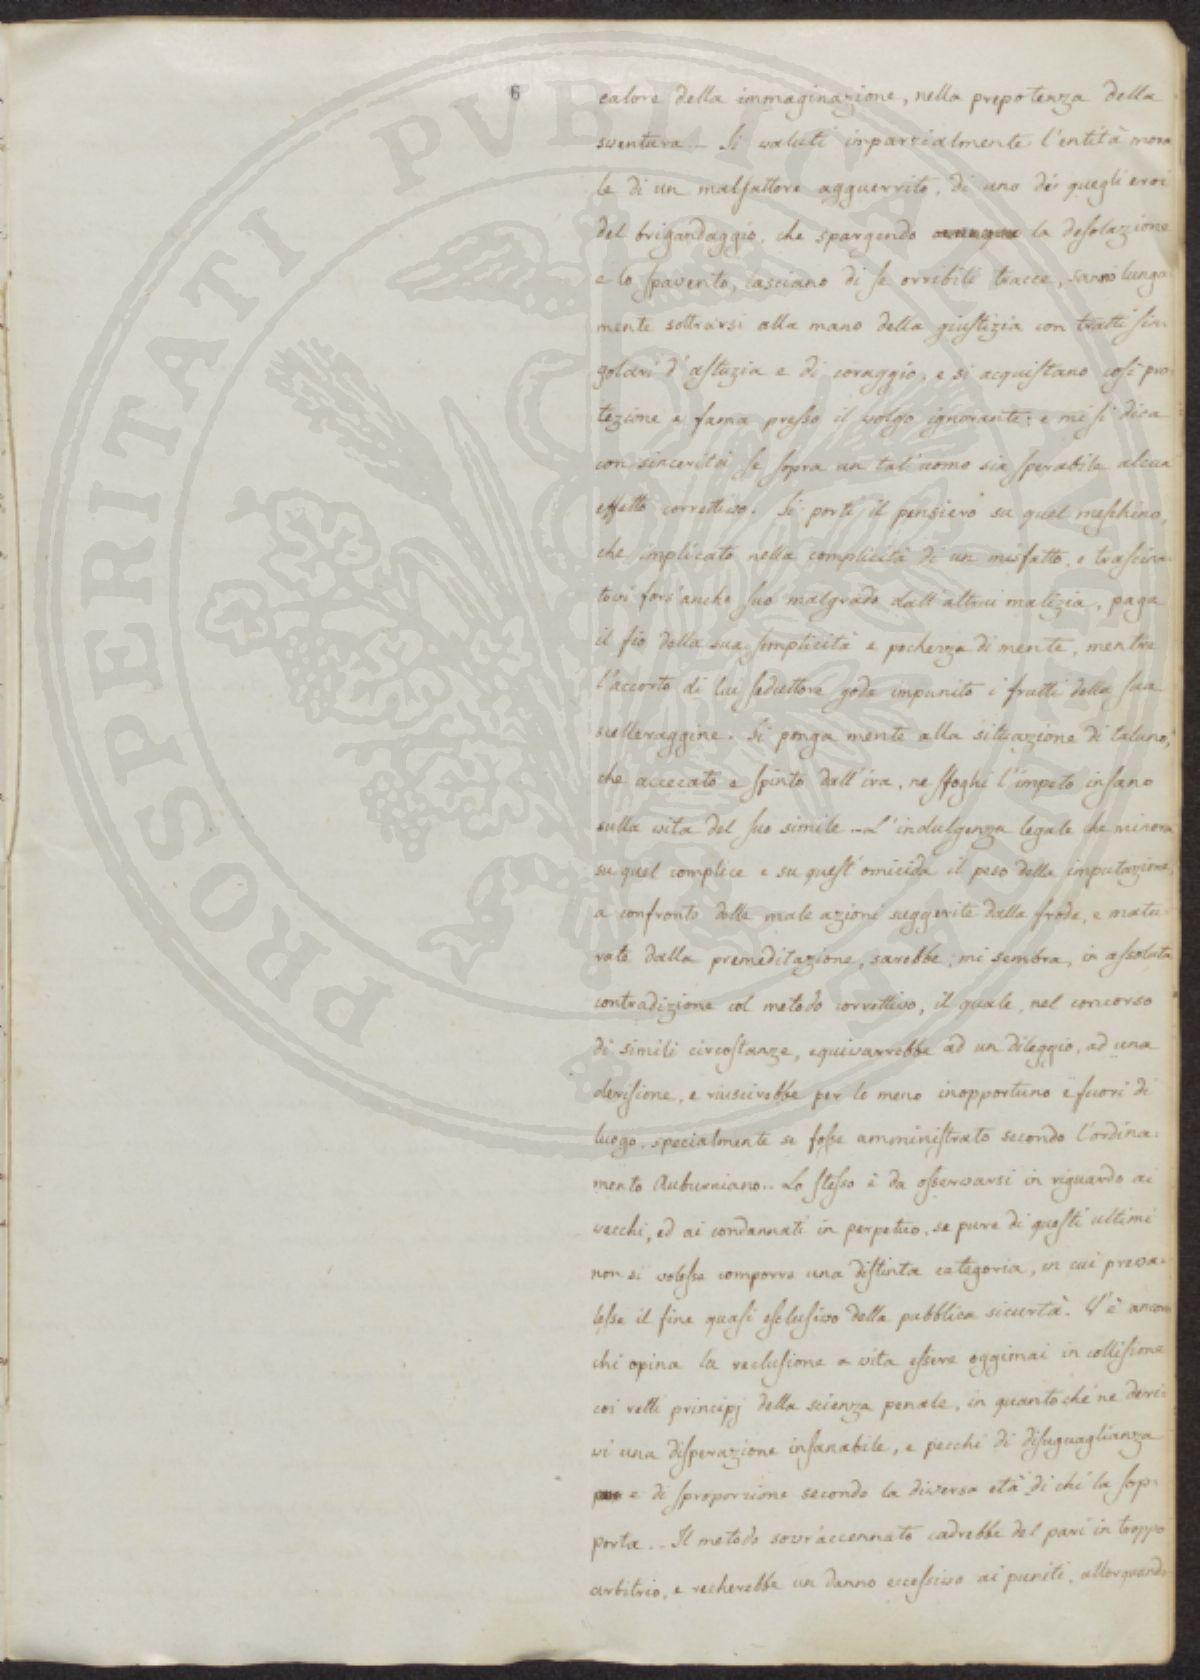 6
calore della immaginazione, nella prepotenza della
sventura – Si valuti imparzialmente l'entità mora
le di un malfattore agguerrito, di uno de' quegli eroi
del brigandaggio, che spargendo la desolazione
e lo spavento, lasciano di se orribili tracce, sanno lunga
mente sottrarsi alla mano della giustizia con tratti sin-
golari d'astuzia e di coraggio, e si acquistano così pro-
tezione e fama presso il volgo ignorante: e mi si dica
con sincerità se sopra un tal'uomo sia sperabile alcun
effetto correttivo. Si porti il pensiero su quel meschino,
che implicato nella complicità di un misfatto, e trascina-
tovi fors'anche suo malgrado dall'altrui malizia, paga
il fio della sua semplicità e pochezza di mente, mentre
l'accorto di lui seduttore gode impunito i frutti della sua
scelleraggine. Si ponga mente alla situazione di taluno,
che accecato e spinto dall'ira, ne sfoghi l'impeto insano
sulla vita del suo simile – L'indulgenza legale che minora
su quel complice e su quest'omicida il peso della imputazione,
a confronto delle male azioni suggerite dalla frode, e matu-
rate dalla premeditazione, sarebbe, mi sembra, in assoluta
contradizione col metodo correttivo, il quale, nel concorso
di simili circostanze, equivarrebbe ad un dileggio, ad una
derisione, e riuscirebbe per lo meno inopportuno e fuori di
luogo, specialmente se fosse amministrato secondo l'ordina-
mento Auburniano.. Lo stesso è da osservarsi in riguardo ai
vecchi, ed ai condannati in perpetuo, se pure di questi ultimi
non si volesse comporre una distinta categoria, in cui preva-
lesse il fine quasi esclusivo della pubblica sicurtà. V'è ancora
chi opina la reclusione a vita essere oggimai in collisione
coi retti principj della scienza penale, in quanto chè ne deri-
vi una disperazione insanabile, e pecchi di diseguaglianza
e di sproporzione secondo la diversa età di chi la sop-
porta.. Il metodo sovr'accennato cadrebbe del pari in troppo
arbitrio, e recherebbe un danno eccessivo ai puniti, allorquando
PROSPERITATI PVBLICAE